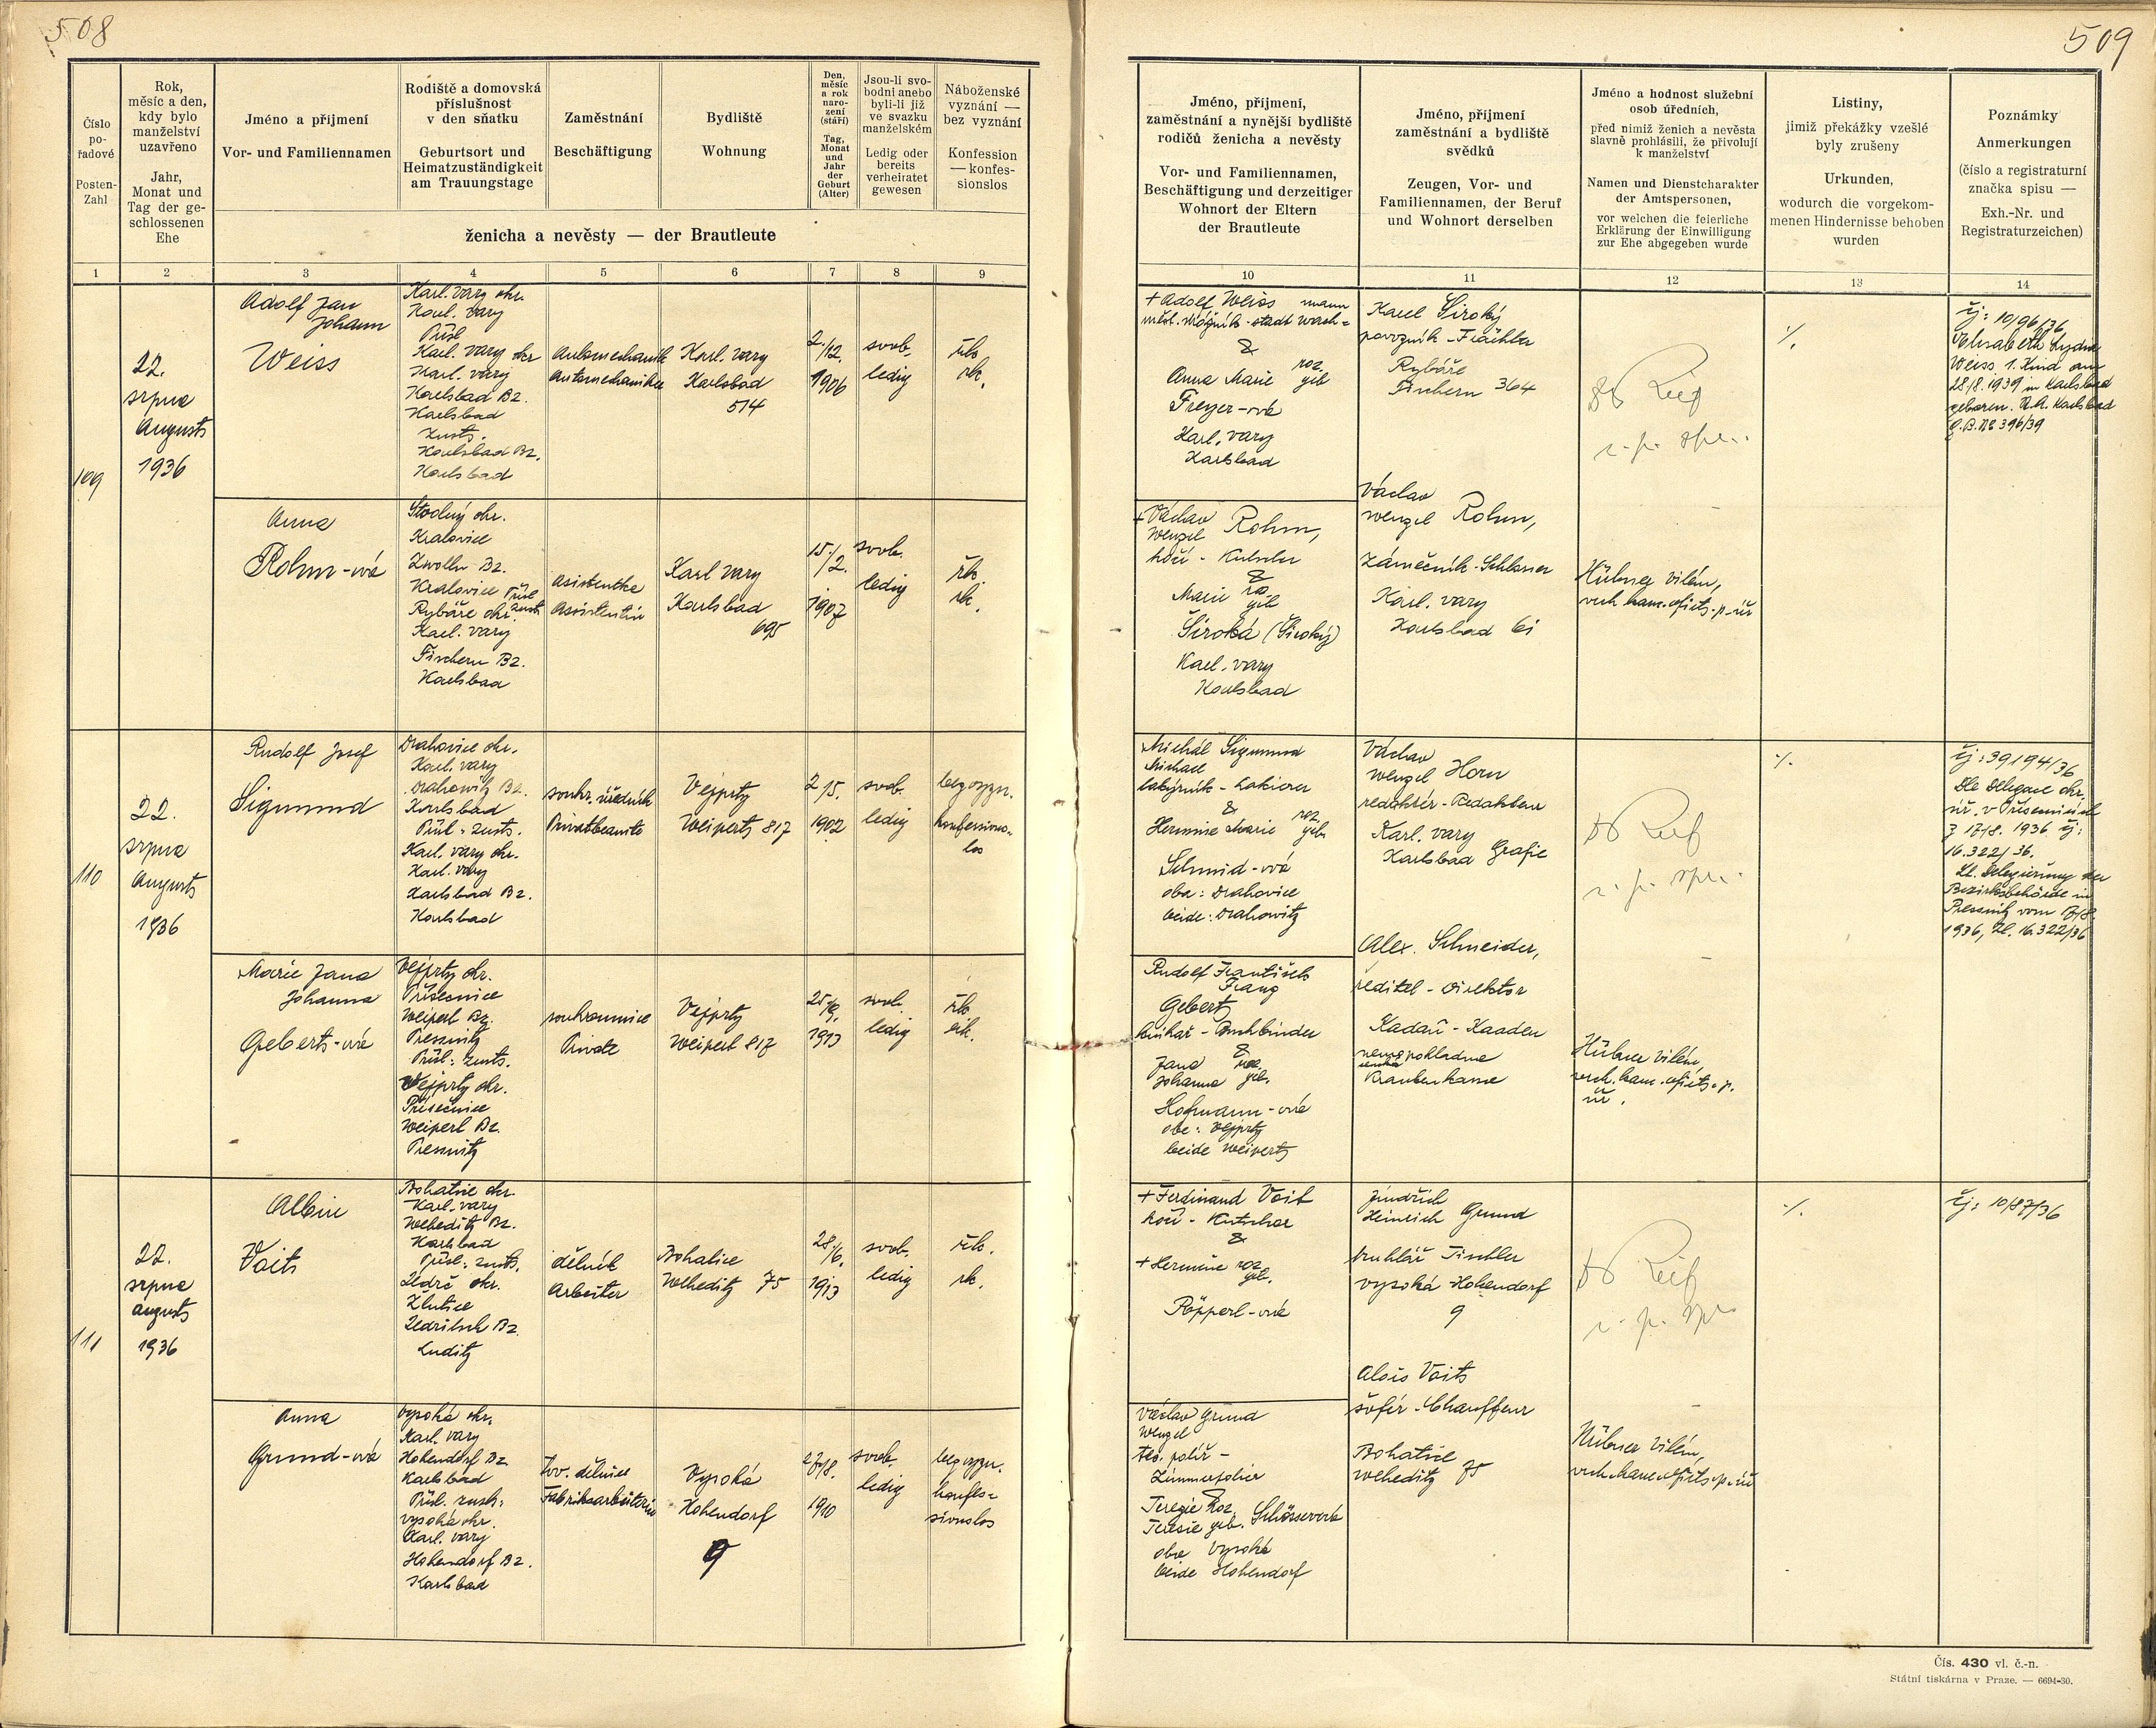 508
Číslo
po-
řadové
Posten-
Zahl
Rok,
měsíc a den,
kdy bylo
manželství
uzavřeno
Jahr,
Monat und
Tag der ge-
schlossenen
Ehe
Jméno a příjmení
Vor- und Familiennamen
Rodiště a domovská
příslušnost
v den sňatku
Geburtsort und
Heimatzuständigkeit
am Trauungstage
Zaměstnání
Beschäftigung
Bydliště
Wohnung
Den,
měsíc
a rok
naro-
zení
(stáří)
Tag,
Monat
und
Jahr
der
Geburt
(Alter)
Jsou-li svo-
bodni anebo
byli-li již
ve svazku
manželském
Ledig oder
bereits
verheiratet
gewesen
Náboženské
vyznání —
bez vyznání
Konfession
— konfes-
sionslos
ženicha a nevěsty — der Brautleute
1 2 3 4 5 6 7 8 9
109
22.
srpna
Augusts
1936
Adolf Jan
Johann
Weiss
Karl. vary okr.
Karl. vary
Přísl
Karl. vary okr
Karl. vary
Karlsbad Bz.
Karlsbad
Zusts.
Karlsbad Bz.
Karlsbad
Automechanik
Automechaniker
Karl. vary
Karlsbad
514
2./12.
1906
svob.
ledig
řk
rk.
Anna
Rohm-ová
Kralovice
Zwolln Bz.
Kralovice Přísl
Rybáře okr. Zust.
Karl. vary
Fischern Bz.
Karlsbad
asistentka
Assistentin
Karl vary
Karlsbad
695
15./2.
1907
svob.
ledig
řk.
rk.
110
22.
srpna
Augusts
1936
Rudolf Josef
Sigmund
Drahovice okr.
Karl. vary
Drahowitz Bz.
Karlsbad
Přísl: zusts.
Karl. vary okr.
Karl. vary
Karlsbad Bz.
Karlsbad
soukr. úředník
Privatbeamte
Vejprty
Weipertz 817
2/5.
1902
svob.
ledig
bez vyzn.
konfessions-
los
Marie Jana
Johanna
Gebert-ová
Vejprty okr.
Přísečnice
Weipert Bz.
Pressnitz
Přísl: zusts.
Vejprty okr.
Přísečnice
Weipert Bz.
Pressnitz
soukromnice
Private
Vejprty
Weipert 817
25/9.
1913
svob.
ledig
řk
rk.
111
22.
srpna
augusts
1936
Albin
Voits
Bohatice okr.
Karl. vary
Weheditz Bz.
Karlsbad
Přísl: zusts.
okr.
Žlutice
Bz.
Luditz
dělník
Arbeiter
Bohatice
Weheditz 75
28./6.
1913
svob.
ledig
řk.
rk.
Anna
Grund-ová
Vysoká okr.
Karl. vary
Hohendorf Bz
Karlsbad
Přísl. zust:
vysoká okr.
Karl. vary
Hohendorf Bz.
Karlsbad
tov. dělnice
Fabriksarbeiterin
Vysoká
Hohendorf
9
27/8.
1910
svob.
ledig
bez vyzn.
konfes-
sionslos
509
Jméno, příjmení,
zaměstnání a nynější bydliště
rodičů ženicha a nevěsty
Vor- und Familiennamen,
Beschäftigung und derzeitiger
Wohnort der Eltern
der Brautleute
Jméno, příjmení
zaměstnání a bydliště
svědků
Zeugen, Vor- und
Familiennamen, der Beruf
und Wohnort derselben
Jméno a hodnost služební
osob úředních,
před nimiž ženich a nevěsta
slavně prohlásili, že přivolují
k manželství
Namen und Dienstcharakter
der Amtspersonen,
vor welchen die feierliche
Erklärung der Einwilligung
zur Ehe abgegeben wurde
Listiny,
jimiž překážky vzešlé
byly zrušeny
Urkunden,
wodurch die vorgekom-
menen Hindernisse behoben
wurden
Poznámky
Anmerkungen
(číslo a registraturní
značka spisu —
Exh.-Nr. und
Registraturzeichen)
10 11 12 13 14
+ Adolf Weiss mann
měst. strážník - stadt Wach-
&
Anna Marie roz. geb
Freyer-ová
Karl. vary
Karlsbad
Karel Široký
povozník - Frächter
Rybáře
Fischern 364
Václav
Wenzel Rohm,
zámečník - Schlosser
Karl. vary
Karlsbad
Hübner Vilém,
·/.
čj: 10/96/36
Elisabeth Lydia
Weiss 1. Kind am
28/8.1939 in Karlsbad
geboren. St.A. Karlsbad
G.B. Nr 396/39
+ Václav
Wenzel Rohm,
kočí - Kutscher
&
Marie roz geb
Široká (Široký)
Karl. vary
Karlsbad
Michal Sigmund
Michael
labýrník - Lakierer
&
Hermine Marie roz. geb.
Schmid-ová
oba: Drahovice
beide: Drahowitz
Václav
Wenzel Horn
redaktér - Redakteur
Karl. vary
Karlsbad Grafie
Alex. Schneider,
ředitel - Direktor
Kadaň - Kaaden
nemocenská pokladna
Krankenkasse
Hübner Vilém,
·/.
čj: 39194/36
Dle delegace okr.
úř. v Přísečnici
z 17/8. 1936 čj:
16.322/36.
Lt. Delegierung der
Bezirksbehörde in
Pressnitz vom 17/8.
1936, Zl. 16.322/36
Rudolf František
Franz
Gebert
knihař - Buchbinder
&
Jana roz.
Johanna geb.
Hofmann-ová
oba: Vejprty
beide Weipertz
+ Ferdinand Voit
kočí - Kutscher
&
+ Hermine roz. geb.
Pöpperl-ová
Jindřich
Heinrich Grund
truhlář Tischler
vysoká Hohendorf
9
Alois Voits
šofér - Chauffeur
Bohatice
Weheditz 75
Hübner Vilém,
·/.
čj: 10/87/36
Václav Grund
Wenzel
tes. polír -
Zimmerpolier
&
Terezie roz.
Teresie geb.
oba Vysoká
beide Hohendorf
Čís. 430 vl. č.-n.
Státní tiskárna v Praze. — 6694-30.